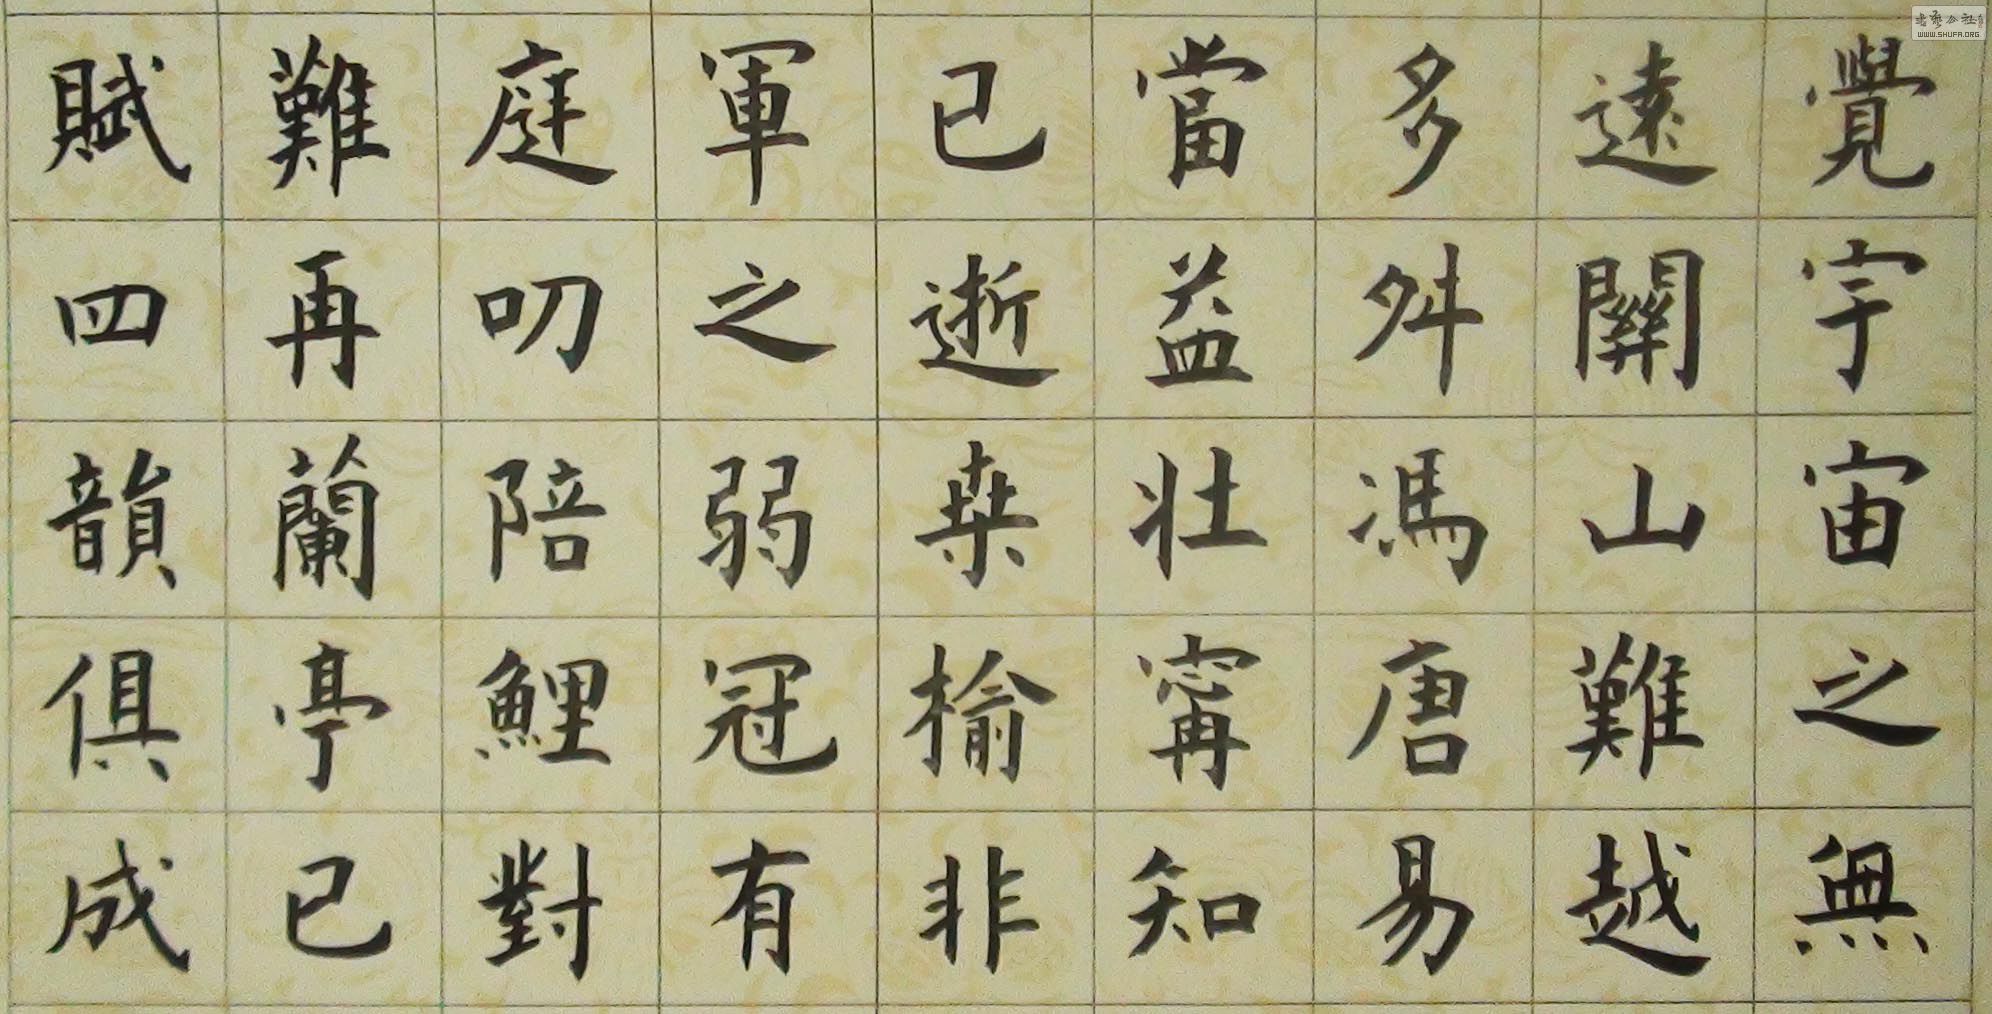 覺宇宙之無
遠關山難越
多舛馮唐易
當益壯寗知
已逝桒榆非
軍之弱冠有
庭叨陪鯉對
難再蘭亭已
賦四韻俱成
WWW.SHUFA.ORG